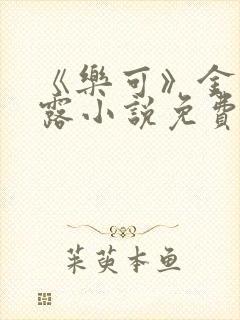 《樂可》金
露小說免費
茱萸本鱼